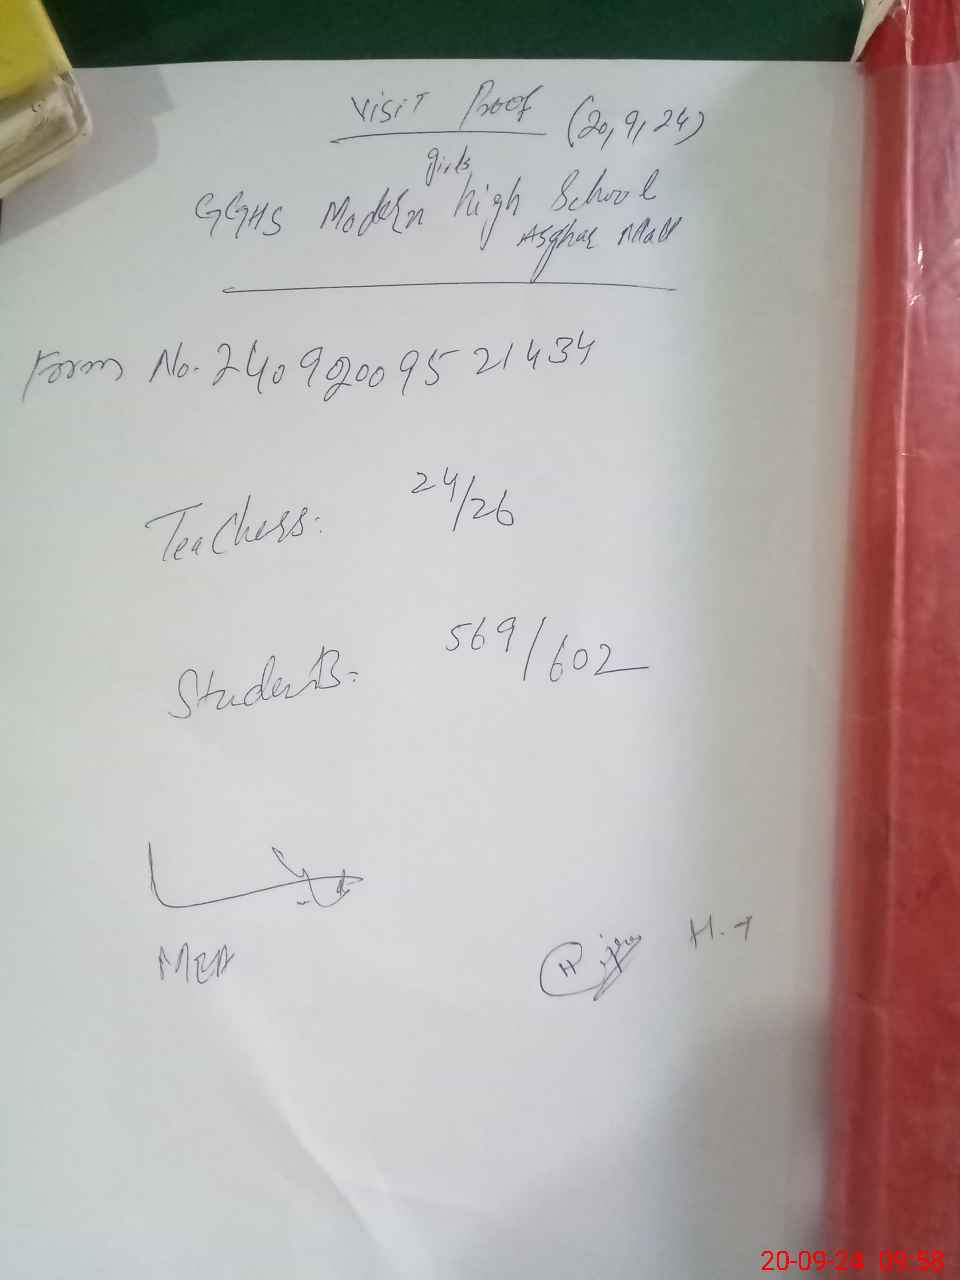 Visit Proof (20,9,24)
girls
GGHS Modern high School
Asghar Mall
Form No. 24092009521434
Teachers: 24/26
Students: 569/602
MEA
H.T
20-09-24 09:58